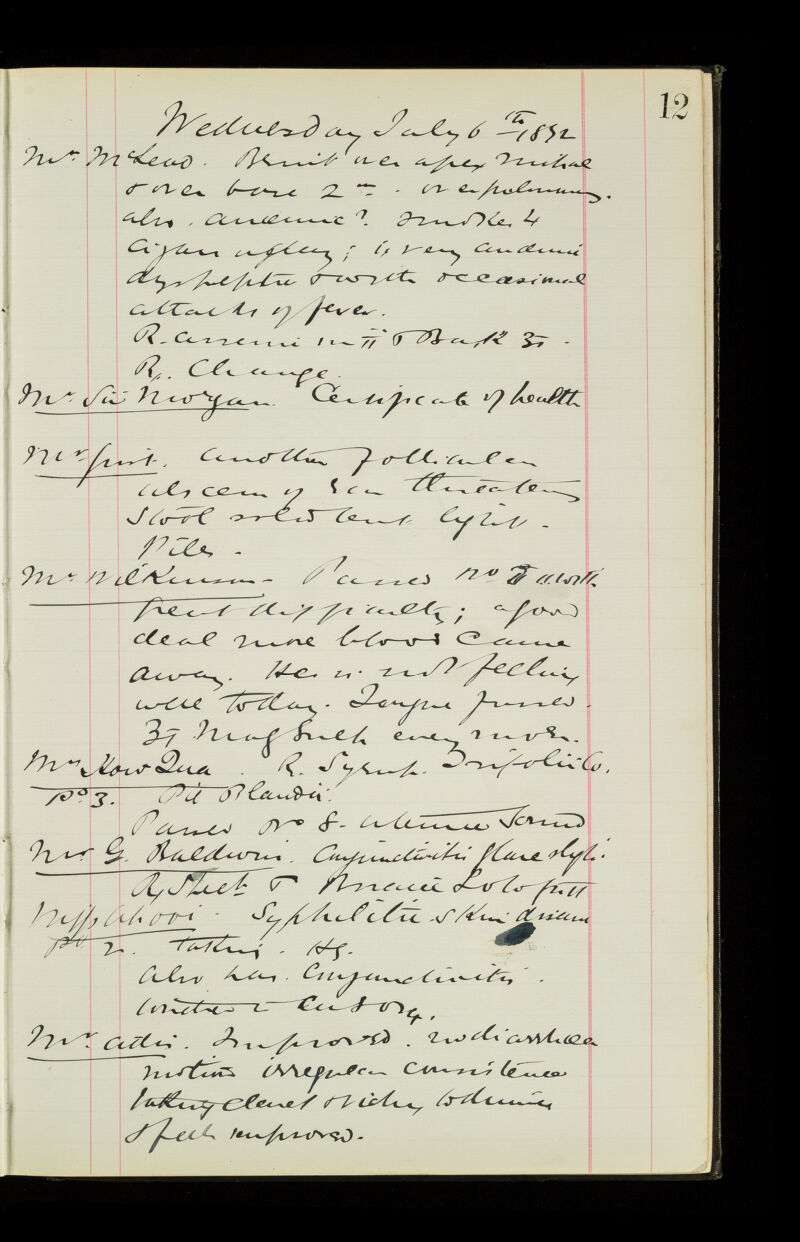 12
Wednesday July 6th 1892
Mr. McLeod. Bruit over apex mitral
& over base 2nd. over pulmonary.
also. anaemic? smokes 4
cigars a day; is very anaemic
dyspeptic & with occasional
attacks of fever.
R. arsenic m II & Bark ℨi.
R. Change.
Mr. Morgan. Certificate of health
Mr. Another follicular
abscess of ear threatening
Stool solid but light.
Piles.
Mr. Wilkinson. Passed No 11 with
great difficulty; a good
deal more blood came
away. He is not feeling
well today. Tongue furred.
ℨi Mag Sulh every morn.
Mr. How Qua. R. Syrup. Trifolii Co.
po 3. Pil Blaudii.
Passed No 8. Sound
Mr. G. Baldwin. Conjunctivitis
R Boracic Loto
Syphilitic skin disease
po 2. taking. Hg.
also has. Conjunctivitis.
Mr. Improved. no diarrhoea
motions irregular consistence
taking claret & vichy to dinner
& feels improved.